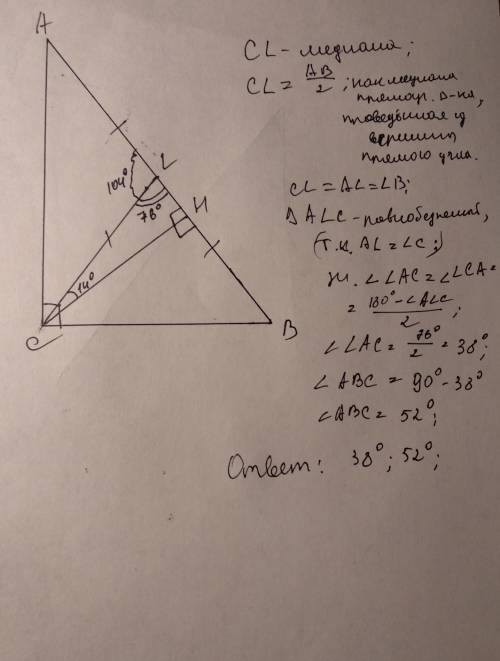 A
CL - медиана;
CL = AB/2; как медиана
прямоуг. Δ-ка,
проведённая из
вершины
прямого угла.
L
104°
H
78°
CL = AL = LB;
Δ ALC - равнобедренный,
(т.к. AL = LC;)
14°
∠LAC = ∠LCA =
= 180° - ∠ALC / 2 ;
C
B
∠LAC = 76°/2 = 38°;
∠ABC = 90° - 38°
∠ABC = 52°;
Ответ: 38°; 52°;